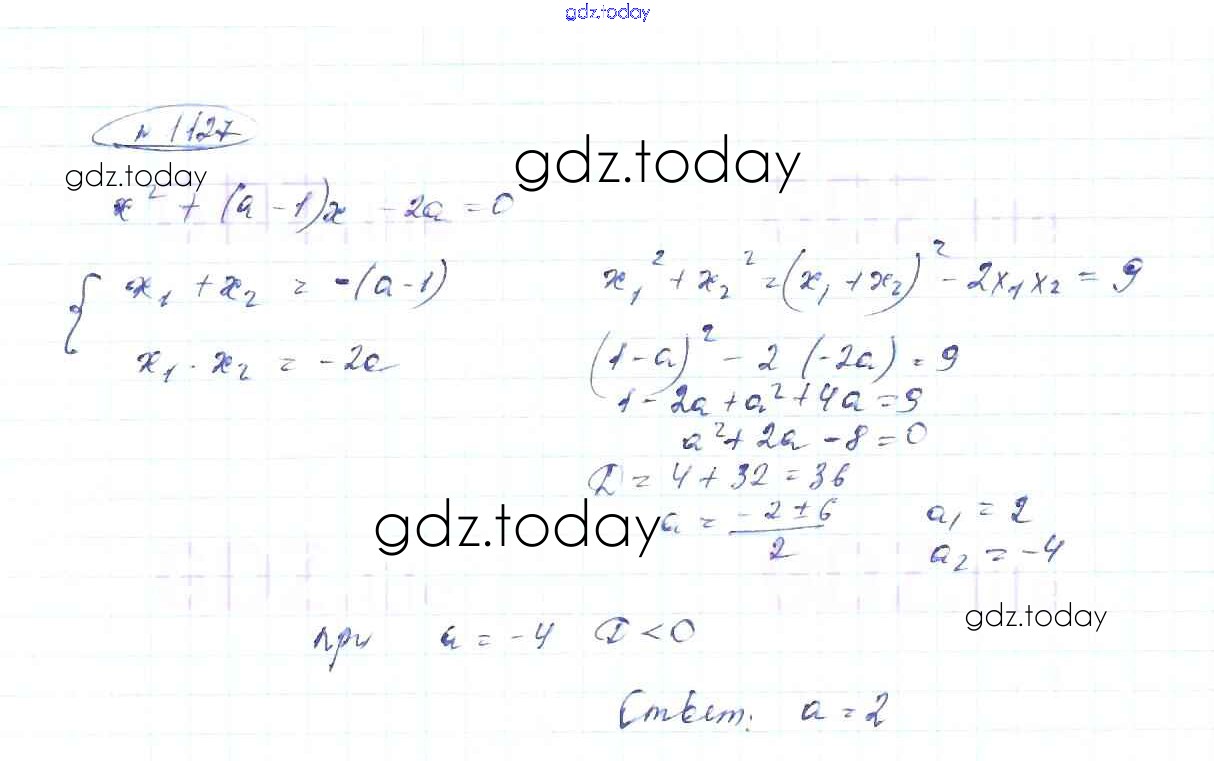 gdz.today
№ 1127
gdz.today
gdz.today
x² + (a - 1)x - 2a = 0
{ x₁ + x₂ = -(a-1)
x₁ · x₂ = -2a
x₁² + x₂² = (x₁ + x₂)² - 2x₁x₂ = 9
(1-a)² - 2 (-2a) = 9
1 - 2a + a² + 4a = 9
a² + 2a - 8 = 0
D = 4 + 32 = 36
a = (-2 ± 6)/2
a₁ = 2
a₂ = -4
gdz.today
gdz.today
при a = -4 D < 0
Ответ: a = 2